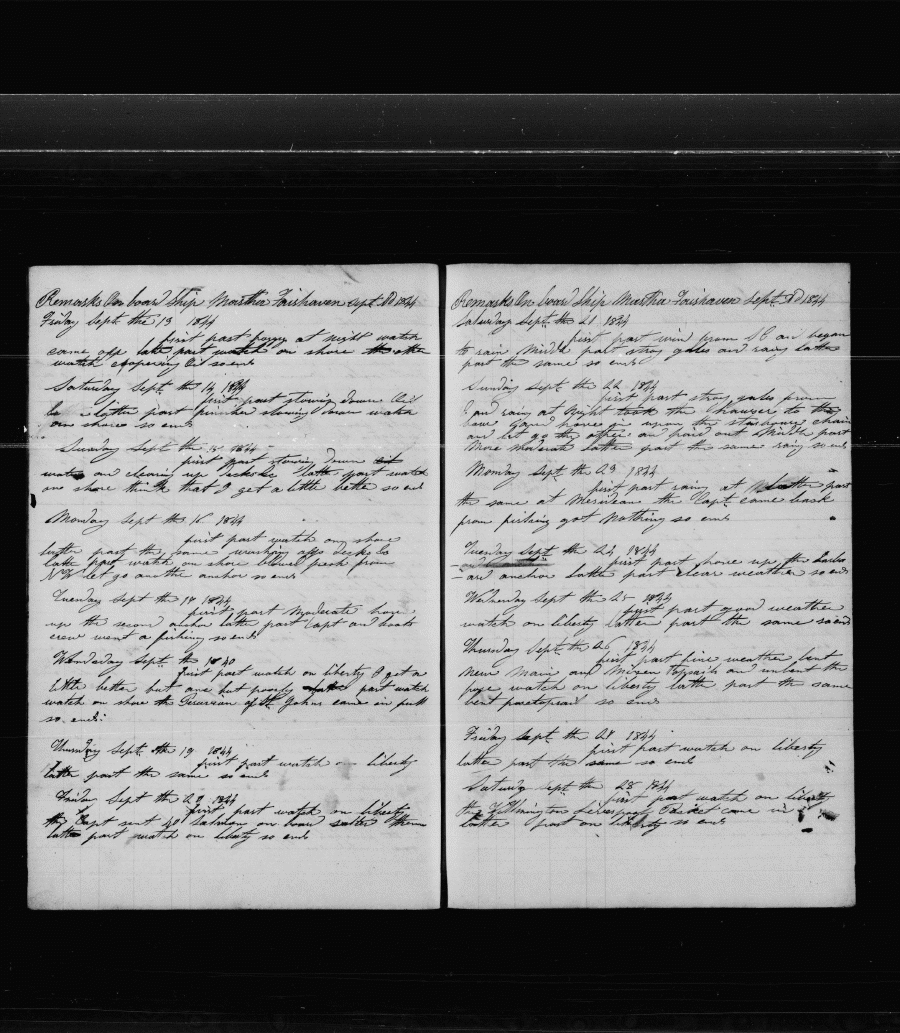 Remarks On board Ship Martha Fairhaven Sept AD 1844
Friday Sept the 13 1844
first part foggy at night watch
came off latter part watch on shore the other
watch coopering oil so ends
Saturday Sept the 14 1844
first part stowing down oil
latter part finished stowing down watch
on shore so ends
Sunday Sept the 1844
first part stowing down
and clearing up decks &c latter part watch
on shore think that I get a little better so ends
Monday Sept the 16 1844
first part watch on shore
latter part the same washing off decks &c
latter part watch on shore blows fresh from
NW let go another anchor so ends
Tuesday Sept the 17 1844
first part Moderate hove
up the second anchor latter part Capt and boats
crew went a fishing so ends
Wendsday Sept the 18
first part watch on liberty I get a
little better but are but poorly latter part watch
watch on shore the Peruvian of St Johns came in full
so ends
Thursday Sept the 19 1844
first part watch on liberty
latter part the same so ends
Friday Sept the 20 1844
first part watch on liberty
the Capt sent 40 Salmon on board salted them
latter part watch on liberty so ends
Remarks On board Ship Martha Fairhaven Sept AD 1844
Saturday Sept the 21 1844
first part wind from SE and began
to rain Middle part strong gales and rainy latter
part the same so ends
Sunday Sept the 22 1844
first part strong gales from
and rainy at Night took the hawser to the
hove in upon the starboard chain
and let go the other and paid out Middle part
More moderate latter part the same rainy so ends
Monday Sept the 23 1844
first part rainy latter part
the same at Meridean the Capt came back
from fishing got Nothing so ends
Tuesday Sept the 24 1844
first part hove up the larboard
anchor latter part clear weather so ends
Wednesday Sept the 25 1844
first part good weather
watch on liberty latter part the same so ends
Thursday Sept the 26 1844
first part fine weather bent
new main and Mizen Topsails and unbent the
fore watch on liberty latter part the same
bent foretopsail so ends
Friday Sept the 27 1844
first part watch on liberty
latter part the same so ends
Saturday Sept the 28 1844
first part watch on liberty
the Wilmington & Liverpool Packet came in
latter part on liberty so ends